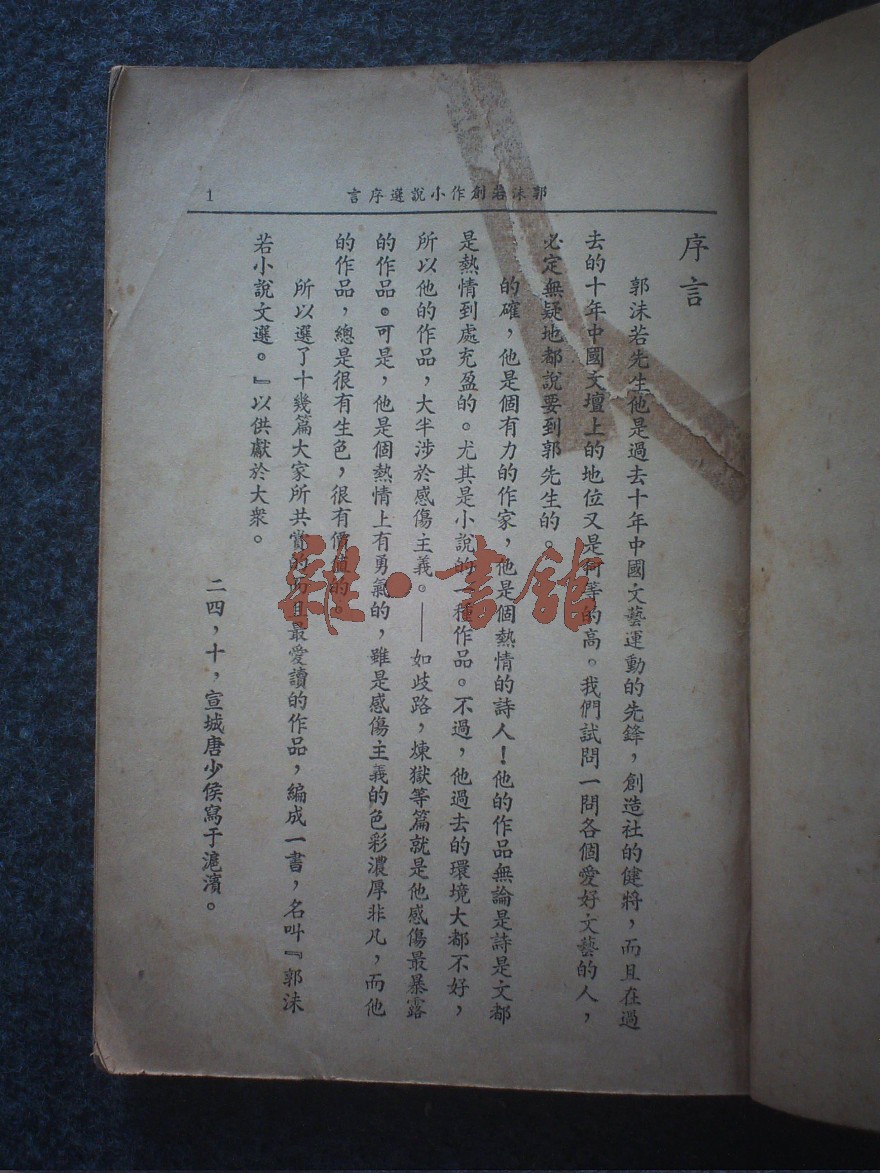 郭沫若創作小說選序言
1
序言
郭沫若先生他是過去十年中國文藝運動的先鋒，創造社的健將，而且在過
去的十年中國文壇上的地位又是何等的高。我們試問一問各個愛好文藝的人，
必定無疑地都說要到郭先生的。
的確，他是個有力的作家，他是個熱情的詩人！他的作品無論是詩是文都
是熱情到處充盈的。尤其是小說的一種作品。不過，他過去的環境大都不好，
所以他的作品，大半涉於感傷主義。——如歧路，煉獄等篇就是他感傷最暴露
的作品。可是，他是個熱情上有勇氣的，雖是感傷主義的色彩濃厚非凡，而他
的作品，總是很有生色，很有價值的。
所以選了十幾篇大家所共賞的而且最愛讀的作品，編成一書，名叫『郭沫
若小說文選。』以供獻於大衆。
二四，十，宣城唐少侯寫于滬濱。
雜·書館